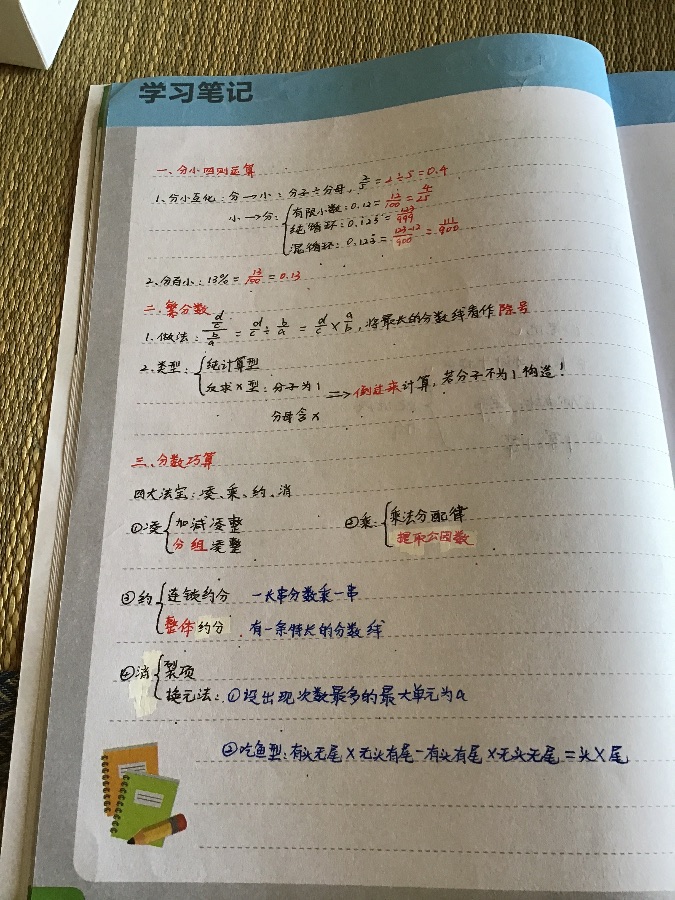 学习笔记
一、分小四则运算
1、分小互化：分→小：分子÷分母，2/5=2÷5=0.4
小→分：{有限小数：0.12=12/100=3/25
纯循环：0.1̇23̇=123/999
混循环：0.123̇=(123-12)/900=111/900
2、分百小：13%=13/100=0.13
二、繁分数
1、做法：(d/c)/(b/a)=d/c÷b/a=d/c×a/b，将最长的分数线看作除号
2、类型：{纯计算型
反求x型：分子为1 ⇒倒过来计算，若分子不为1构造！
分母含x
三、分数巧算
四大法宝：凑、乘、约、消
①凑{加减凑整
分组凑整
②乘{乘法分配律
提取公因数
③约{连锁约分 一大串分数乘一串
整体约分 有一条特长的分数线
④消{裂项
换元法：①设出现次数最多的最大单元为a
②吃鱼型：有头无尾×无头有尾-有头有尾×无头无尾=头×尾